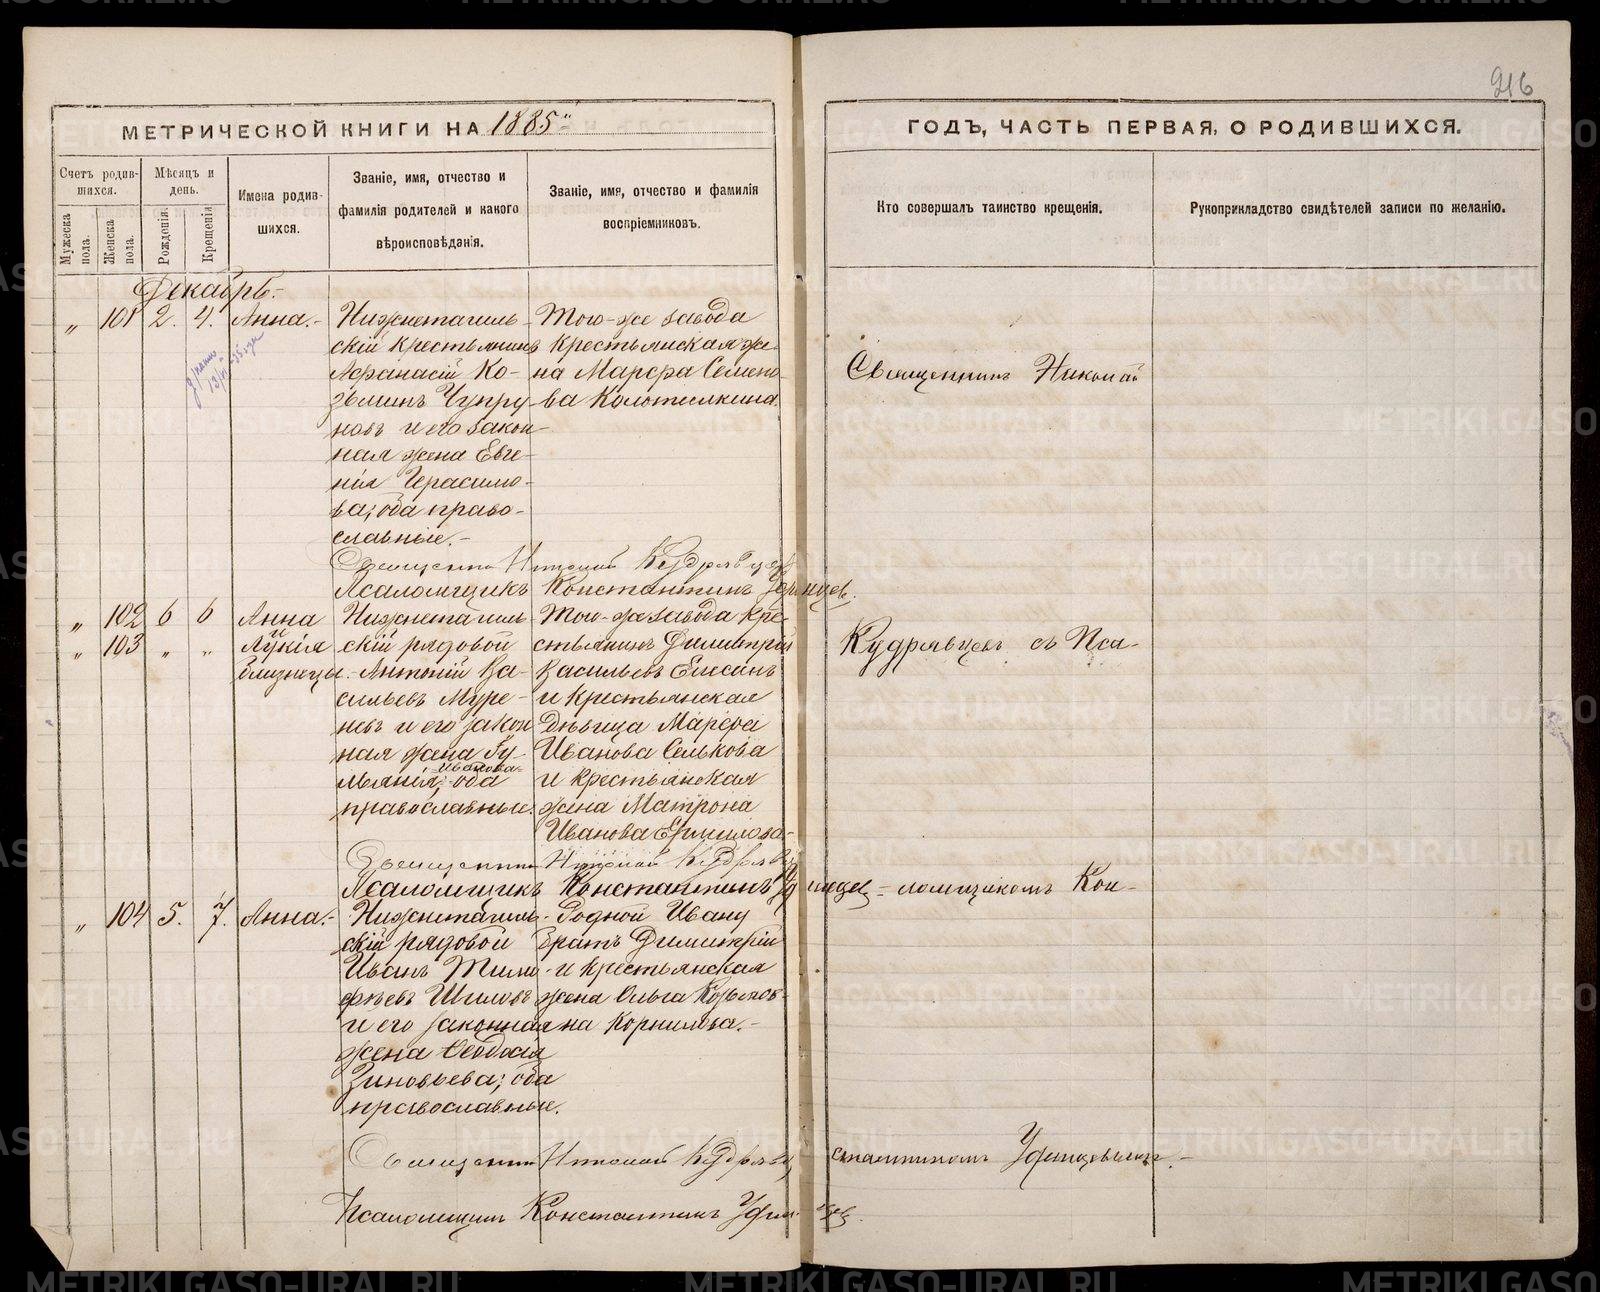 216
МЕТРИЧЕСКОЙ КНИГИ НА 1885й
ГОДЪ, ЧАСТЬ ПЕРВАЯ, О РОДИВШИХСЯ.
Счетъ родив-
шихся.
Мужеска пола.
Женска пола.
Мѣсяцъ и день.
Рожденія.
Крещенія.
Имена родив-
шихся.
Званіе, имя, отчество и
фамилія родителей и какого
вѣроисповѣданія.
Званіе, имя, отчество и фамилія
воспріемниковъ.
Кто совершалъ таинство крещенія.
Рукоприкладство свидѣтелей записи по желанію.
Декабрь.-
„ 101 2. 4. Анна.-
Нижнетагиль-
скій крестьянинъ
Афанасій Ко-
зьминъ Чупру-
новъ и его закон-
ная жена Евге-
нія Герасимо-
ва; оба право-
славные.-
Того-же завода
крестьянская же-
на Марфа Семено-
ва Колотилкина.
Священникъ Николай Кудрявцев
Псаломщикъ Константинъ
„ 102 6 6 Анна
„ 103 „ „ и Лукія
близнецы.-
Нижнетагиль-
скій рядовой
Антоній Ва-
сильевъ Муре-
невъ и его закон
ная жена Гу-
Иванова
оба
православные.
Того-же завода кре-
стьянинъ Димитрій
Васильевъ
и крестьянская
дѣвица Марфа
Иванова Селькова
и крестьянская
жена Матрона
Иванова Ермилова-
Священникъ Николай Кудрявц
Псаломщикъ Константинъ
„ 104 5. 7. Анна.-
Нижнетагиль-
скій рядовой
Иванъ Тимо-
фѣевъ Шиловъ
и его законная
жена Ѳеодосія
Зиновьева; оба
православные.
Родной Ивану
братъ Димитрій
и крестьянская
жена Ольга Козьмов-
на Корнилова.-
Священникъ Николай Кудрявц
Псаломщикъ Константинъ
Священникъ Николай
Кудрявцевъ съ Пса-
ломщикомъ Кон-
стантиномъ